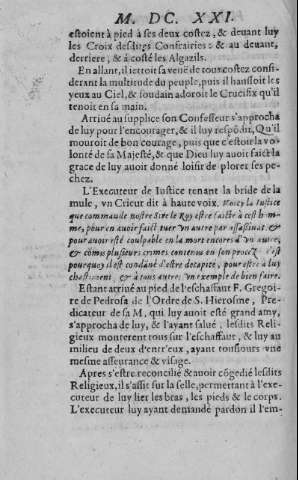 M. DC. XXI.
estoient à pied à ses deux costez, & deuant luy
les Croix desdites Confrairies: & au deuant,
derriere, & à costé les Algazils.
En allant, il iettoit sa veuë de tous costez consi-
derant la multitude du peuple, puis il haussoit les
yeux au Ciel, & soudain adoroit le Crucifix qu'il
tenoit en sa main.
Arriué au supplice son Confesseur s'approcha
de luy pour l'encourager, & il luy respōdit, Qu'il
mouroit de bon courage, puis que c'estoit la vo-
lonté de sa Majesté, & que Dieu luy auoit faict la
grace de luy auoir donné loisir de plorer ses pe-
chez.
L'Executeur de Iustice tenant la bride de la
mule, vn Crieur dit à haute voix. Voicy la Iustice
que commande nostre Sire le Roy estre faicte à cest hom-
me, pour en auoir faict tuer vn autre par assassinat, &
pour auoir esté coulpable en la mort encores d'vn autre,
& cōme plusieurs crimes contenus en son procez: c'est
pourquoy il est condāné d'estre decapité, pour estre à luy
chastiment, & à tous autres vn exemple de bien faire.
Estant arriué au pied de l'eschaffaut F. Gregoi-
re de Pedrosa de l'Ordre de S. Hierosme, Pre-
dicateur de sa M. qui luy auoit esté grand amy,
s'approcha de luy, & l'ayant salué, lesdits Reli-
gieux monterent tous sur l'eschaffaut, & luy au
milieu de deux d'entr'eux, ayant tousiours vne
mesme asseurance & visage.
Apres s'estre reconcilié & auoir cōgedié lesdits
Religieux, il s'assit sur la selle, permettant à l'exe-
cuteur de luy lier les bras, les pieds & le corps.
L'Executeur luy ayant demandé pardon il l'em-